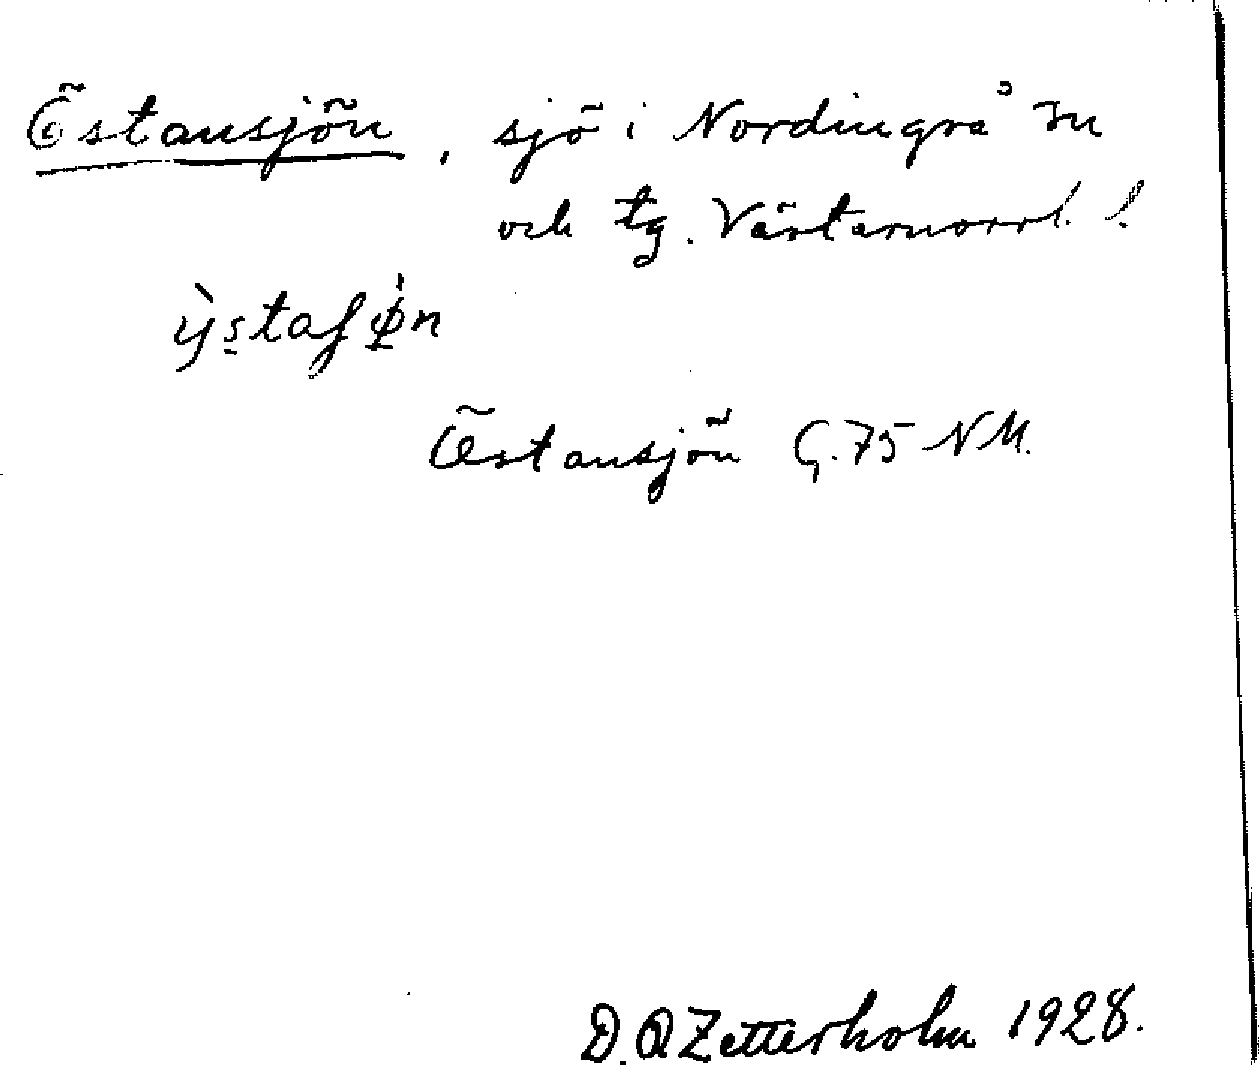 Östansjön, sjö i Nordingrå sn
och tg. Västernorrl. l.
ỳstaʃø̀n
Östansjön G.75 NM.
D.O Zetterholm 1928.